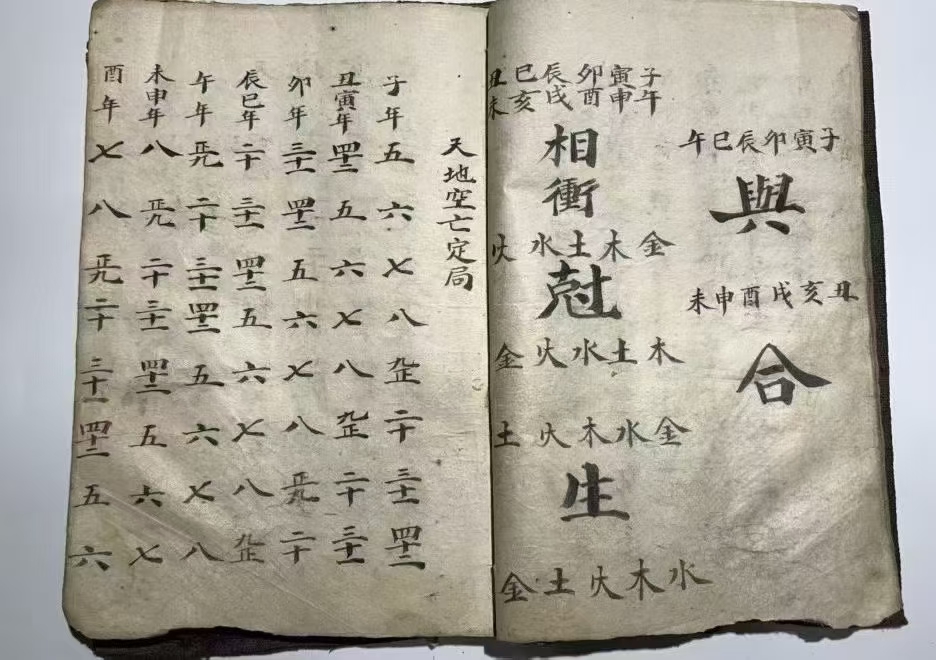 子寅卯辰巳午
與
丑亥戌酉申未
合
子午
寅申
卯酉
辰戌
巳亥
丑未
相衝
金木土水火
尅
木土水火金
金水木火土
生
水木火土金
天地空亡定局
子年五六七八正九二十三十一四十二
丑寅年四十二五六七八正九二十三十一
卯年三十一四十二五六七八正九二十
辰巳年二十三十一四十二五六七八正九
午年正九二十三十一四十二五六七八
未申年八正九二十三十一四十二五六七
酉年七八正九二十三十一四十二五六